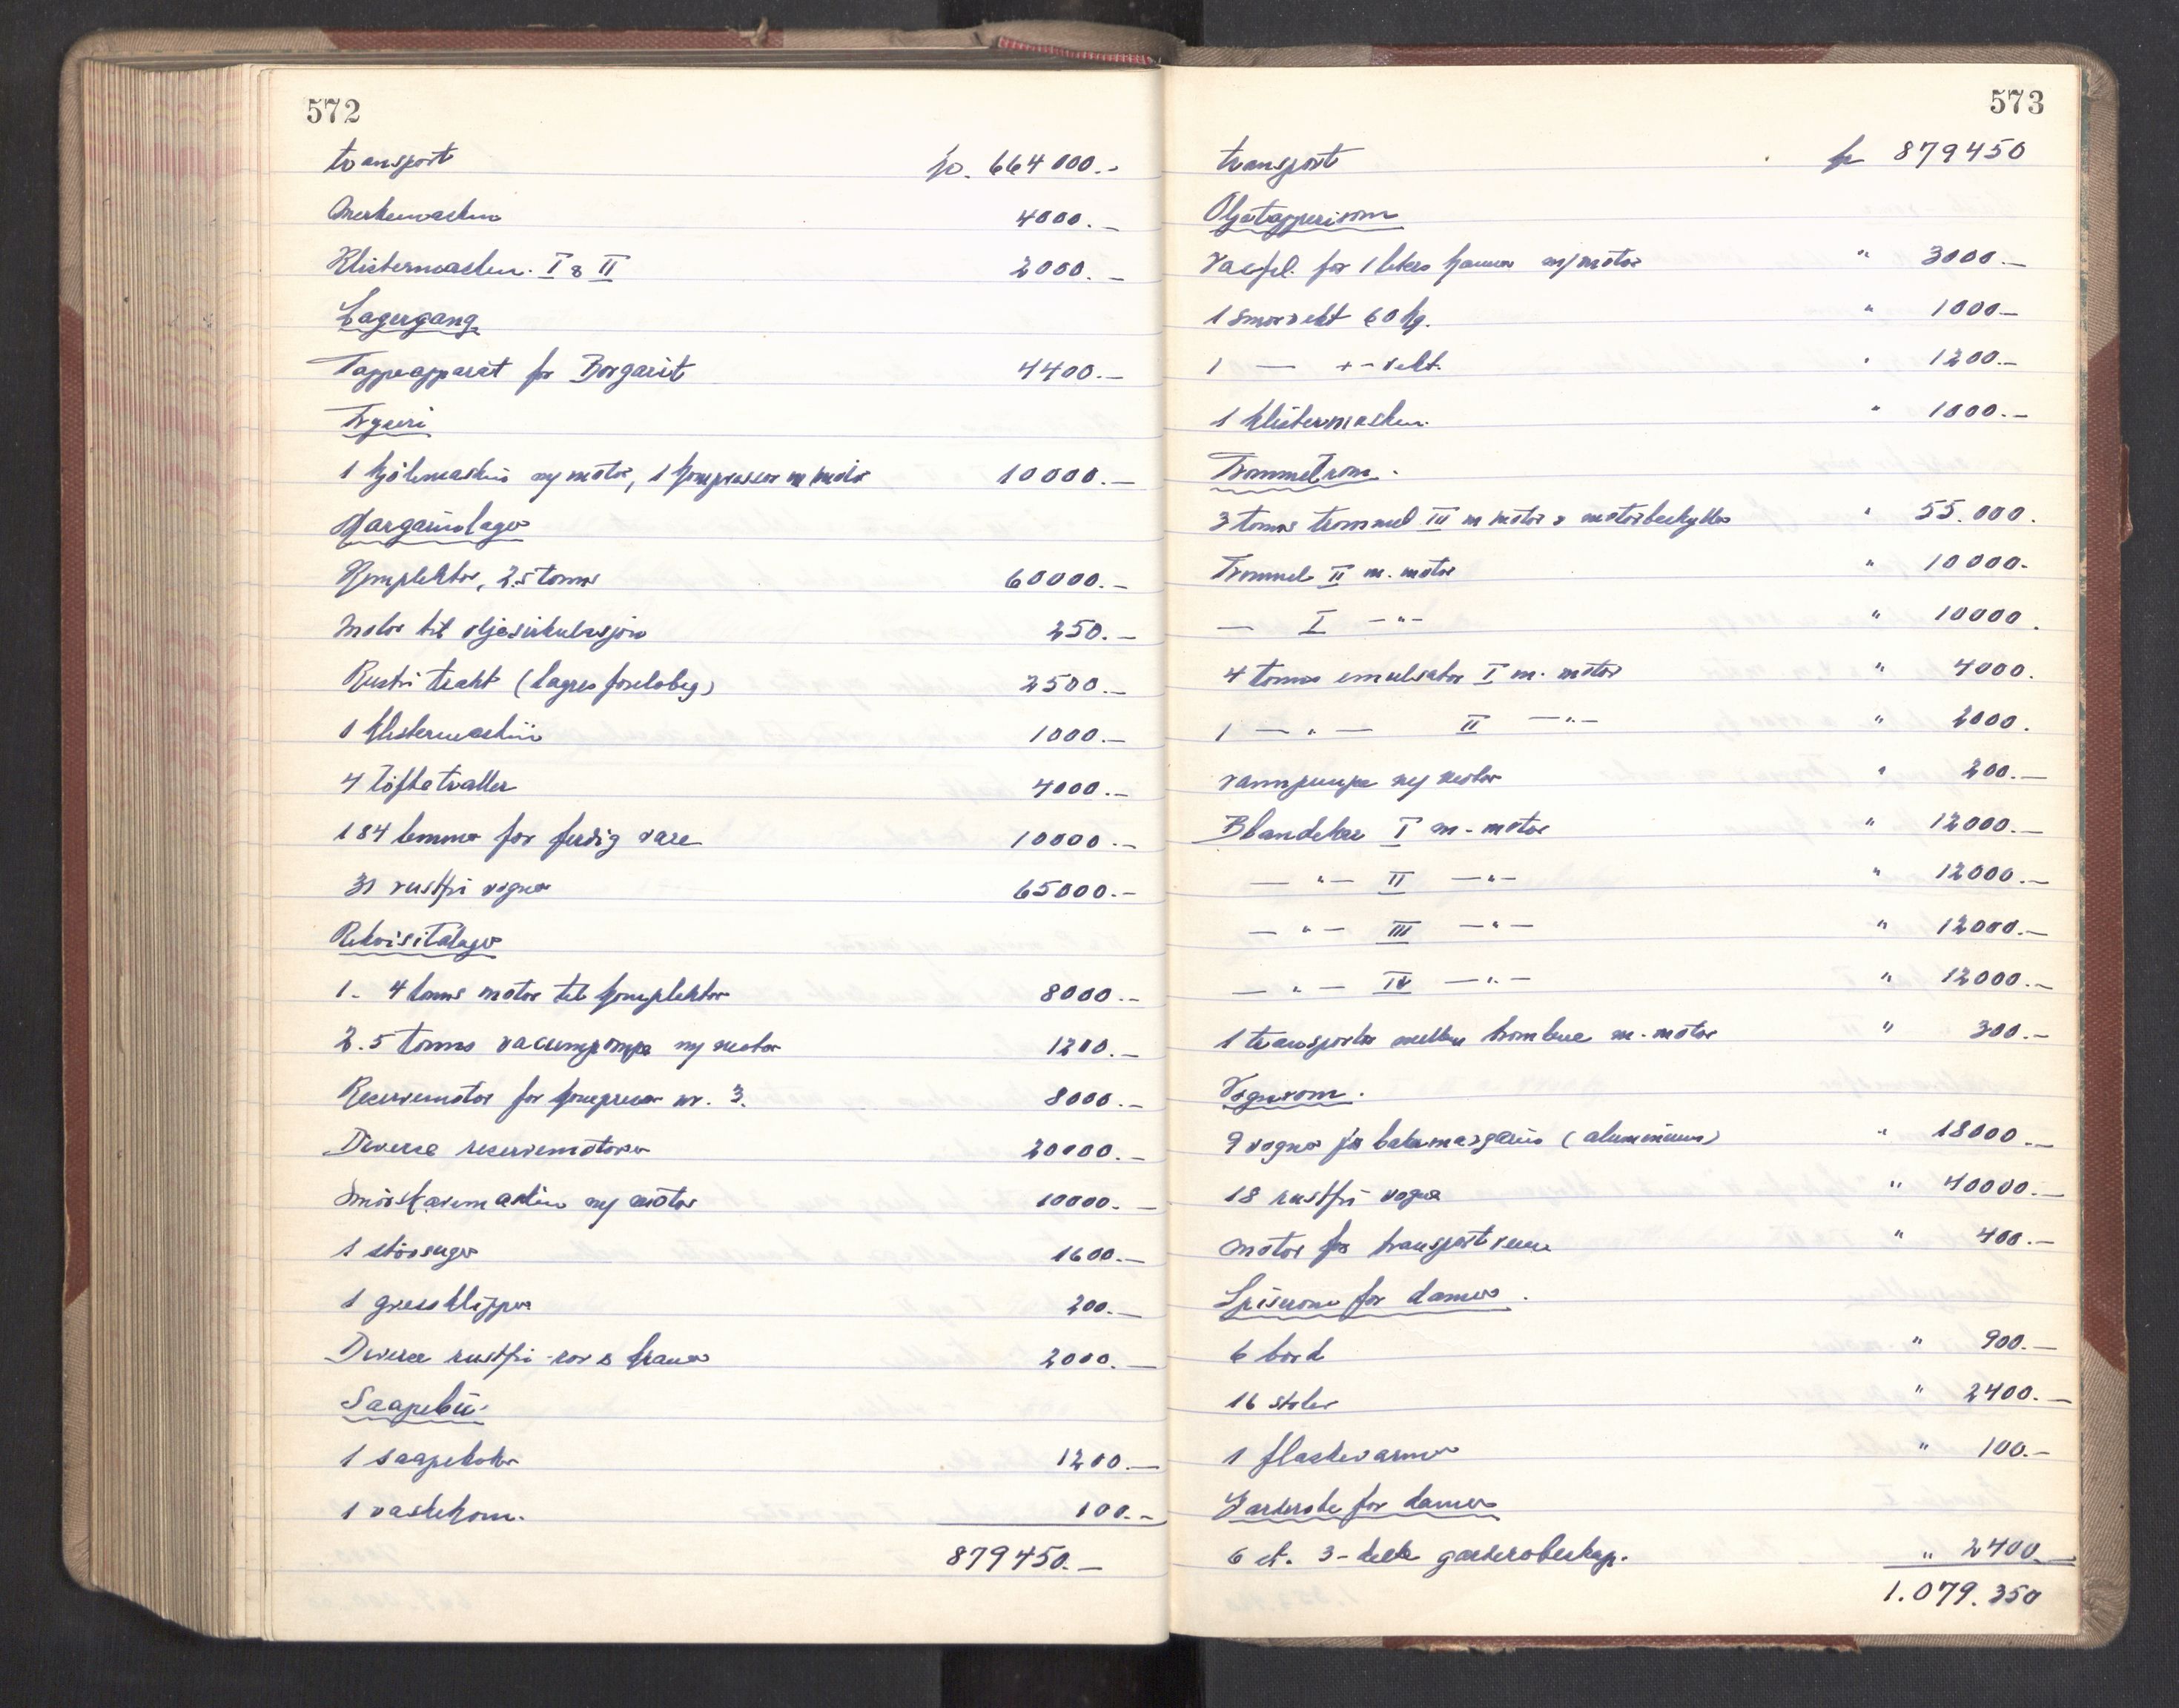 572
transport kr. 664 000.-
Merkemaskin 4000.-
Klistermaskin. I & II 2000.-
Lagergang
Tappeapparat for Borgarit 4400.-
Fryseri
1 kjölemaskin m/ motor, 1 kompressor m/motor 10000.-
Margarinlager
Komplektor, 2.5 tonns 60000.-
Motor til oljesirkulasjon 250.-
Rustfri trakt (lagres foreløbig) 2500.-
1 klistermaskin 1000.-
4 löftetraller 4000.-
184 lemmer for ferdig vare 10000.-
31 rustfri vogner 65000.-
Rekvisitalager
1- 4 tonns motor til komplektor 8000.-
2.5 tonns vacumpompe m/ motor 1200.-
Reservemotor for kompressor nr. 3. 8000.-
Diverse reservemotorer 20000.-
Smörskjæremaskin m/ motor 10000.-
1 stövsuger 1600.-
1 gressklipper 200.-
Diverse rustfri-rør & kraner 2000.-
Saapebu
1 saapekoker 1200.-
1 vaskekom. 100.-
879450.-
573
transport kr 879450
Oljetapperirom
Vaspl. for 1 liters kanner m/motor " 3000.-
1 smørvekt 60 kg. " 1000-
1 — +-vekt. " 1200.-
1 klistermaskin. " 1000.-
Trommelrom.
3 tonns trommel III m motor & motorbeskytter " 55.000.
Trommel II m. motor " 10000.
— I -"- " 10000.
4 tonns emulsator I m. motor " 4000.
1 — " — II —"— " 2000.
vannpumpe m/ motor " 200.-
Blandekar I m- motor " 12000.-
— "— II —"- " 12000.-
— "— III —"- " 12000.-
— "— IV —"- " 12000.-
1 transportør mellem tromlene m. motor " 300.-
Vognrom.
9 vogner for bakermargarin (aluminium) " 18000.-
18 rustfri vogner " 40000.-
motor for transportrenne " 400.-
Spiserom for damer.
6 bord " 900.-
16 stoler " 2400.-
1 flaskevarmer " 100.-
Garderobe for damer
6 st. 3-delte garderobeskap. " 2400.-
1.079.350